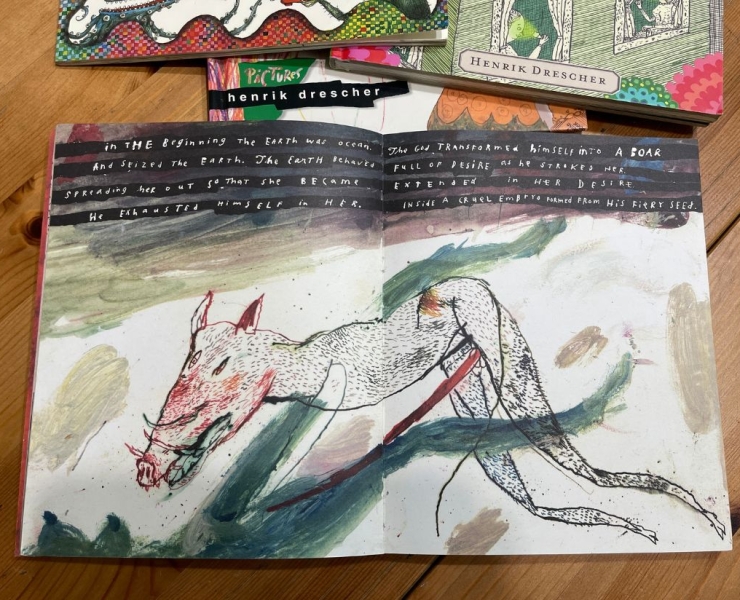 HENRIK DRESCHER
PiCTURES
henrik drescher
in THE BEginning THE EARTH was ocean. The GOD TRANSFORMED himself into A BOAR
And SEIZED THE EARTH. The EARTH BEHAVED FULL OF DESIRE as he STROKED HER.
SPREADING her OUT SO THAT she BECAME EXTENDED in HER DESIRE
HE EXHAUSTED HiMSELF in HER. INSIDE A CRUEL EMBRYO FORMED FROM HiS FIERY SEED.